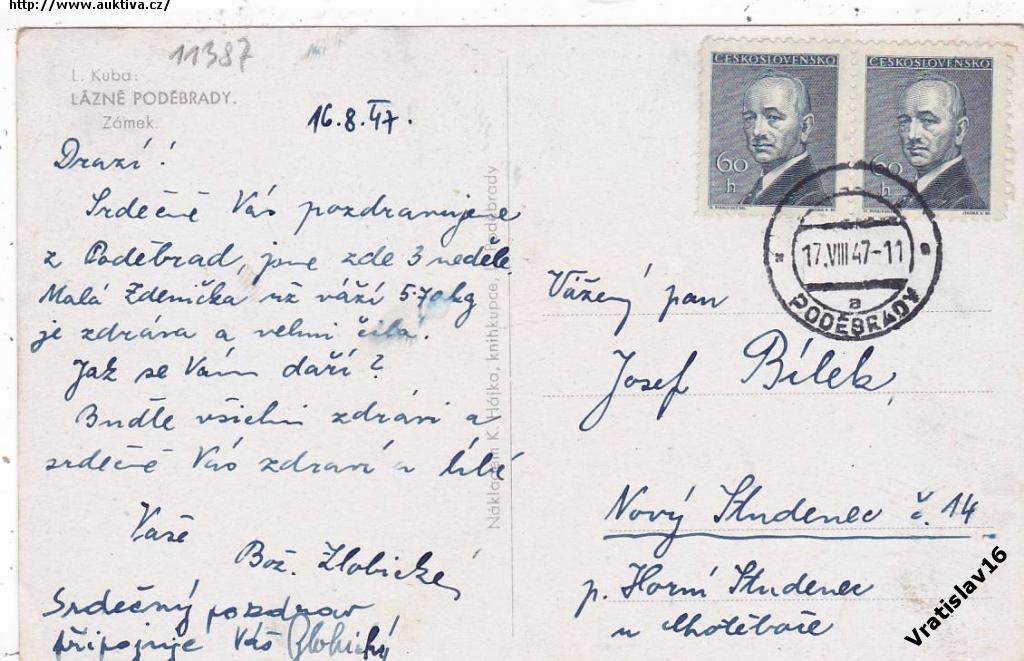 http://www.auktiva.cz/
11387
L. Kuba:
LÁZNĚ PODĚBRADY.
Zámek.
16.8.47.
Drazí!
Srdečně Vás pozdravujeme
z Poděbrad, jsme zde 3 neděle.
Malá Zdenička už váží 5·70kg
je zdráva a velmi čilá.
Jak se Vám daří?
Buďte všichni zdrávi a
srdečně Vás zdraví a líbá
Vaše
Bož.
Srdečný pozdrav
připojuje Váš
Nákladem K. Hájka, knihkupce, Poděbrady
ČESKOSLOVENSKO
60
h
ČESKOSLOVENSKO
60
h
17.VIII 47-11
a
PODĚBRADY
Vážený pan
Josef Bílek
Nový Studenec č. 14
p. Horní Studenec
u Chotěboře
Vratislav16